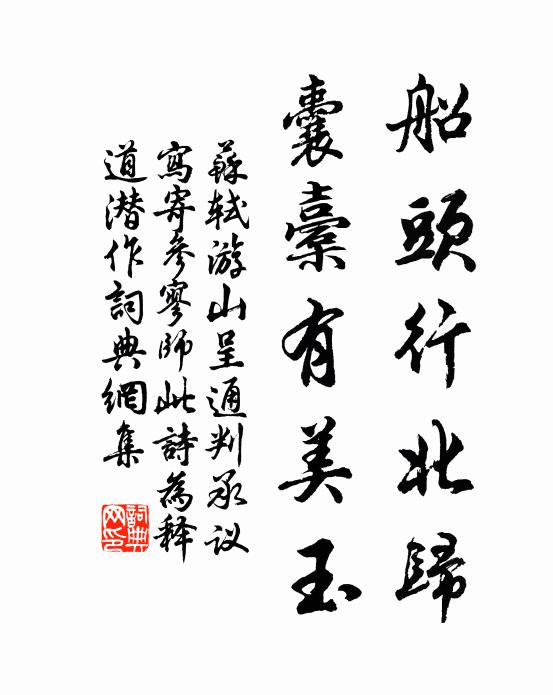 船頭行北歸
囊橐有美玉
蘇軾游山呈通判承议
寫寄參寥師此詩為释
道潜作詞典網集
詞典网印